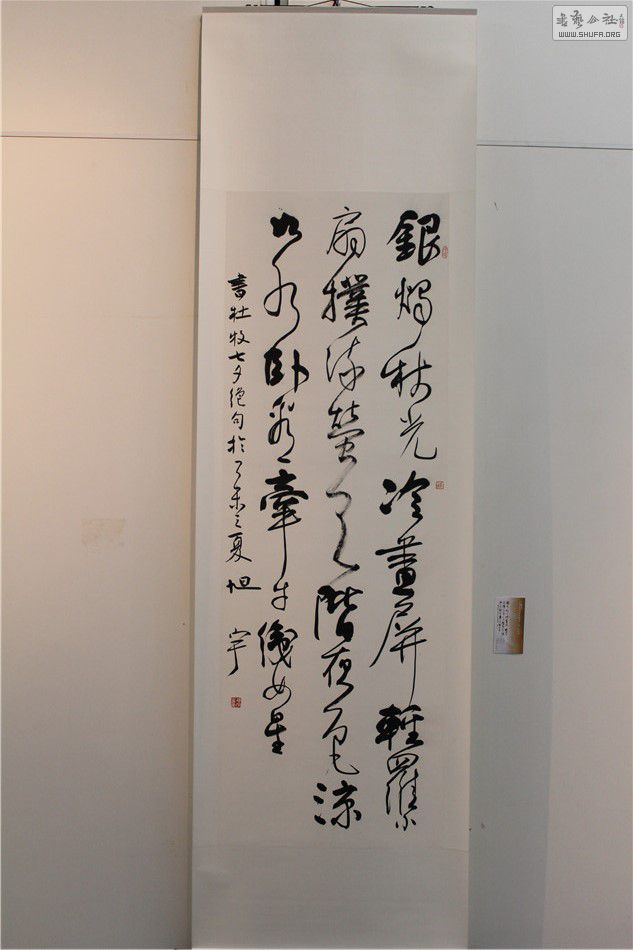 銀燭秋光冷畫屏輕羅小
扇撲流螢天階夜色涼
如水臥看牽牛織女星
書杜牧七夕絕句於乙未之夏 旭宇
書藝公社
WWW.SHUFA.ORG